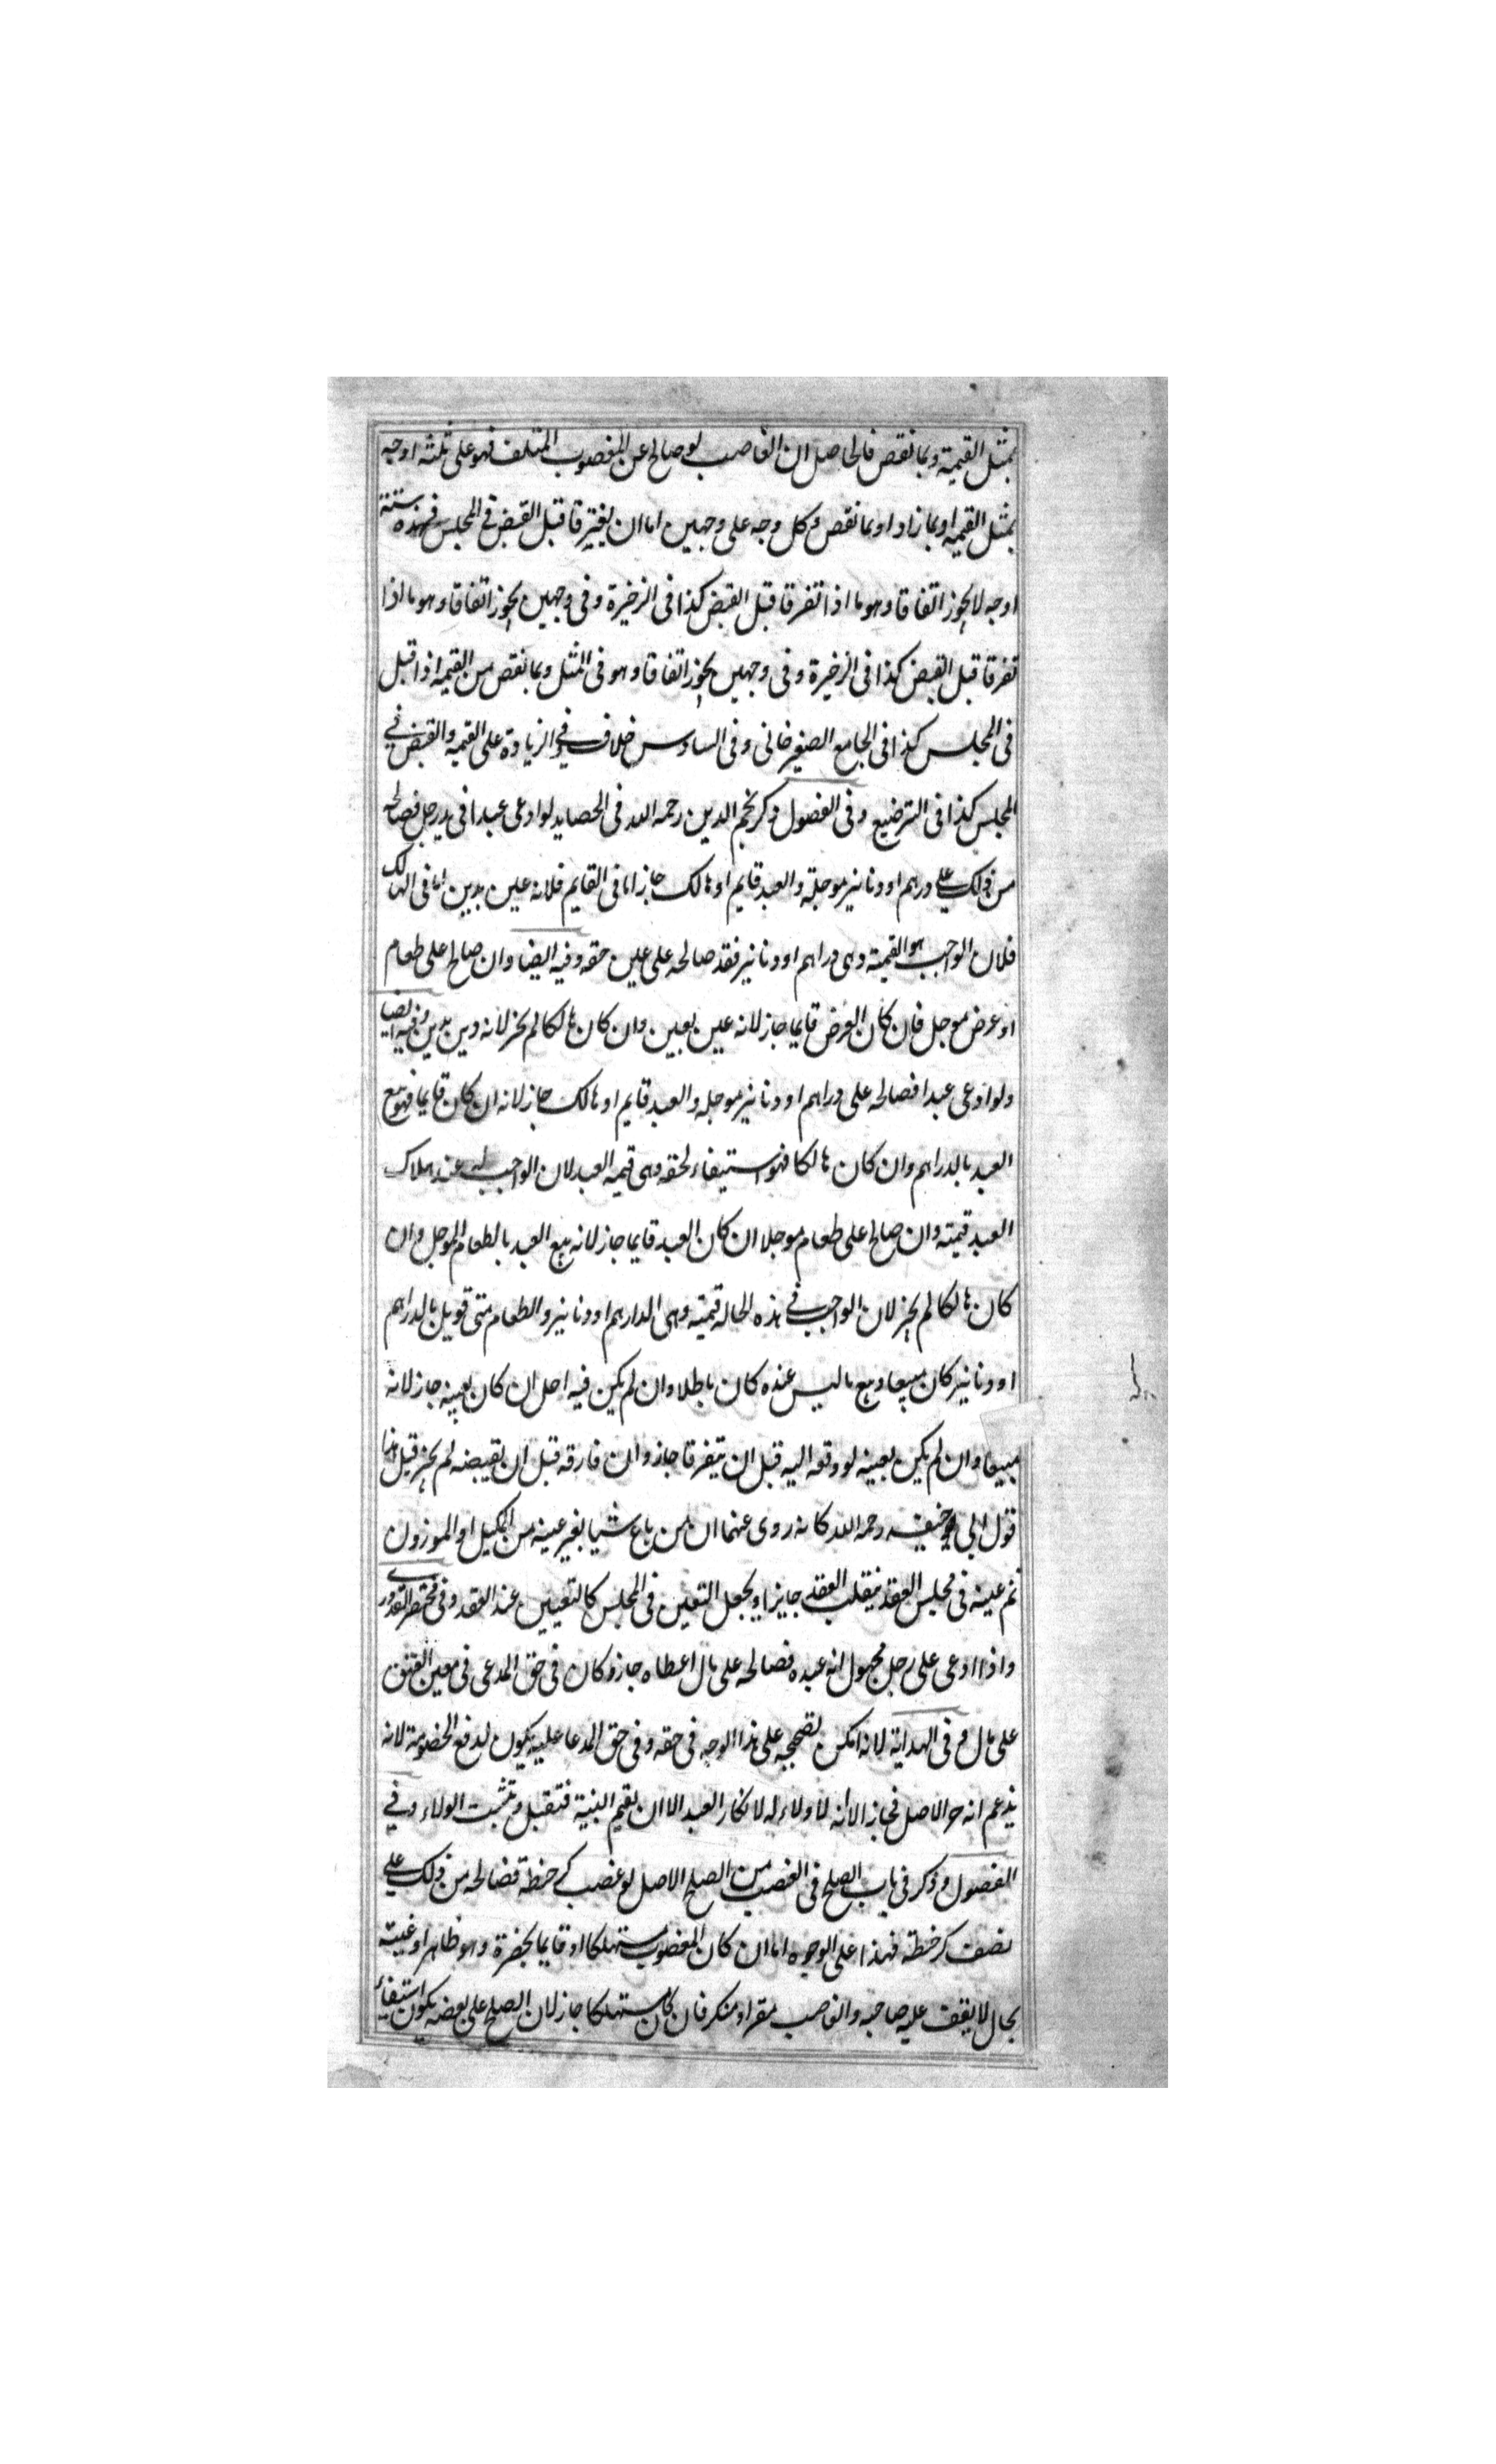 بمثل القيمة وبما نقص فالحاصل ان الغاصب لو صالح عن المغصوب المتلف فهو على ثلثة اوجه
بمثل القيمة او بما زاد او بما نقص وكل وجه على وجهين اما ان يفترقا قبل القبض فى المجلس فهذه ستة
اوجه لا يجوز اتفاقا وهو ما اذا تفرقا قبل القبض كذا فى الذخيرة وفى وجهين يجوز اتفاقا وهو ما اذا
تفرقا قبل القبض كذا فى الذخيرة وفى وجهين يجوز اتفاقا وهو فى المثل وبما نقص من القيمة اذا قبل
فى المجلس كذا فى الجامع الصغير خانى وفى السادس خلاف وفى الزيادة على القيمة والقبض فى
المجلس كذا فى الترضيع وفى الفصول ذكر نجم الدين رحمه الله فى الحصايد لو ادعى عبدا فى يد رجل فصالحه
من ذلك على دراهم او دنانير موجلة والعبد قايم او هالك جاز اما فى القايم فلانه عين بدين اما فى الهالك
فلان الواجب هو القيمة وهى دراهم او دنانير فقد صالحه على عين حقه وفيه ايضا وان صالح على طعام
او عرض موجل فان كان العرض قايما جاز لانه عين بعين وان كان هالكا لم يجز لانه دين بدين وفيه ايضا
ولو ادعى عبدا فصالحه على دراهم او دنانير موجلة والعبد قايم او هالك جاز لانه ان كان قايما فهو بيع
العبد بالدراهم وان كان هالكا فهو استيفاء لحقه وهى قيمة العبد لان الواجب له عند هلاك
العبد قيمته وان صالح على طعام موجلا ان كان العبد قايما جاز لانه بيع العبد بالطعام الموجل وان
كان هالكا لم يجز لان الواجب فى هذه الحالة قيمته وهى الدراهم او دنانير والطعام متى قوبل بالدراهم
او دنانير كان مبيعا وبيع ما ليس عنده كان باطلا وان لم يكن فيه اجل ان كان بعينه جاز لانه
مبيعا وان لم يكن بعينه لو دفعه اليه قبل ان يتفرقا جاز وان فارقه قبل ان يقبضه لم يجز قيل هذا
قول ابى حنيفه رحمه الله كانه روى عنهما ان من باع شيا بغير عينه من المكيل او الموزون
ثم عينه فى مجلس العقد ينقلب العقد جايزا ويجعل التعين فى المجلس كالتعيين عند العقد وفى مختصر القدورى
واذا ادعى على رجل مجهول انه عبده فصالحه على مال اعطاه جاز وكان فى حق المدعى فى معين العتق
على مال وفى الهداية لانه امكن تصحيحه على هذا الوجه فى حقه وفى حق المدعا عليه يكون لدفع الخصومة لانه
يزعم انه حر الاصل فجاز الا انه لا ولاء له لانكار العبد الا ان يقيم البنية فتقبل ويثبت الولاء وفى
الفصول وذكر فى باب الصلح فى الغصب من الصلح الاصل لو غصب كر حنطة فصالحه من ذلك على
نصف كر حنطة فهذا على الوجوه اما ان كان المغصوب مستهلكا او قايما بحضرة وهو ظاهر او غيبته
بحال لا يقف عليه صاحبه والغاصب مقر او منكر فان كان مستهلكا جاز لان الصلح على بعضه يكون استيفاء